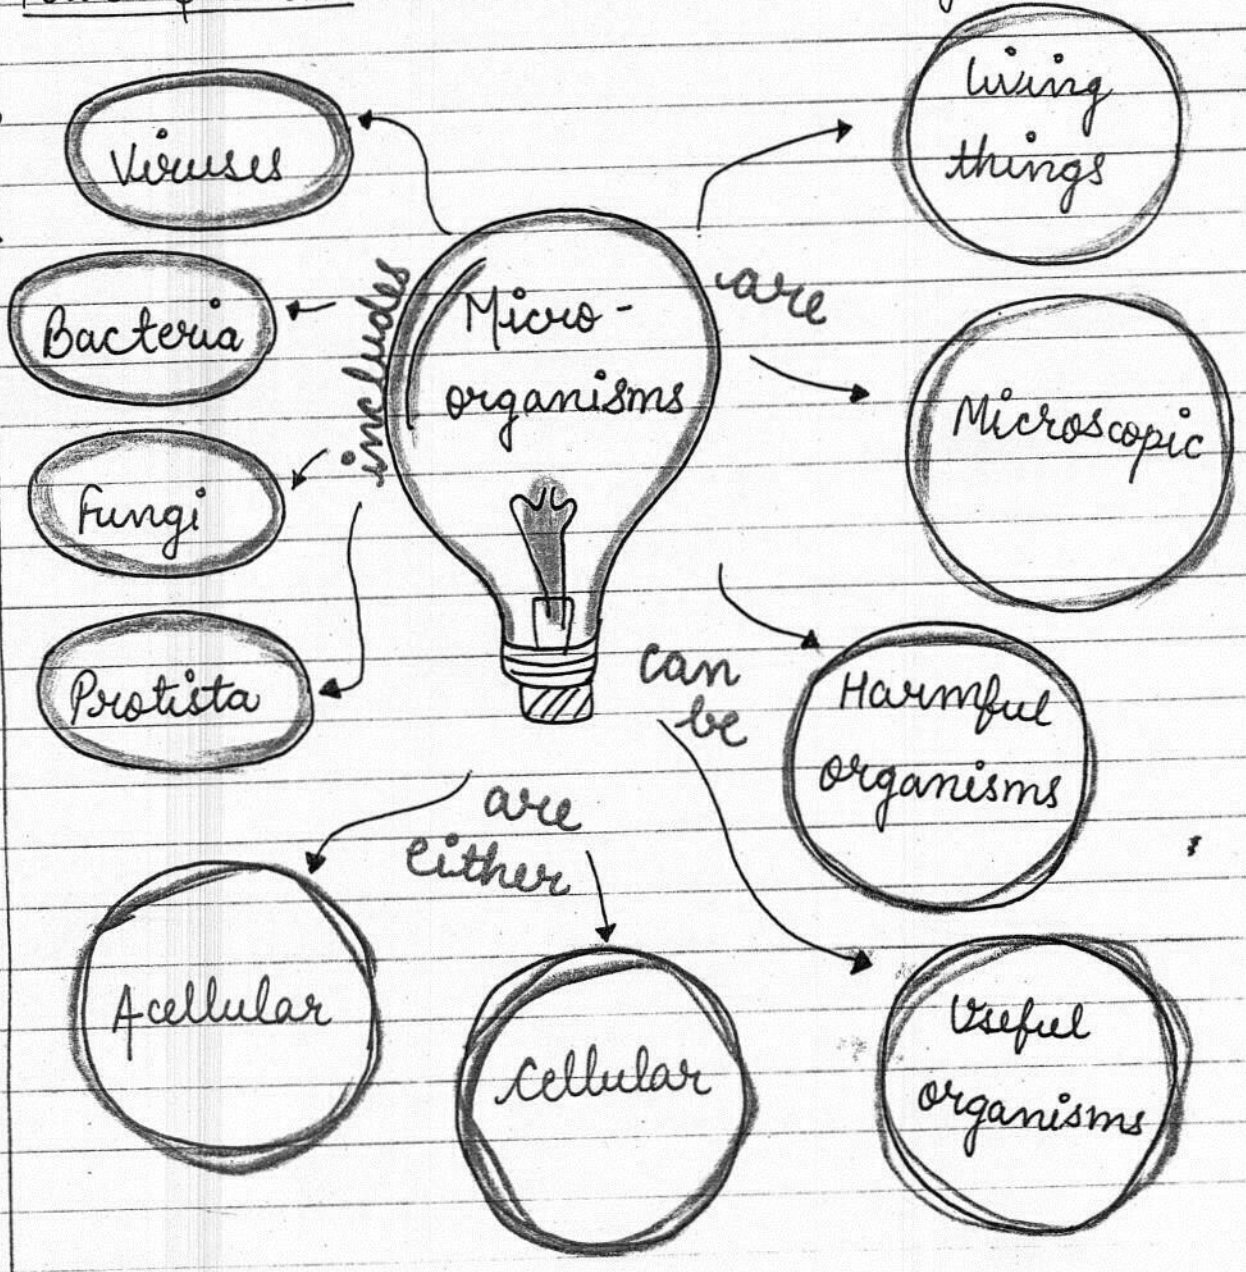 Viruses
Bacteria
Fungi
Protista
includes
Micro-
organisms
are
living
things
Microscopic
can
be
Harmful
organisms
Useful
organisms
are
either
Acellular
Cellular